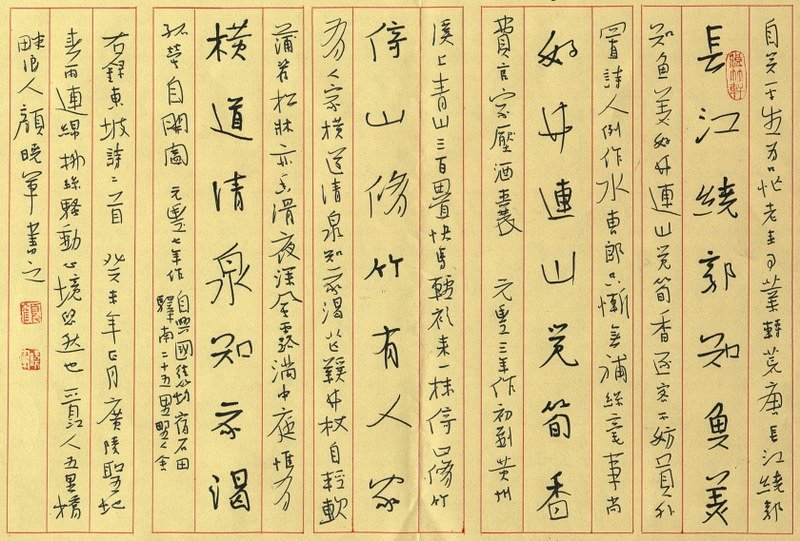 自笑平生为口忙老来事業轉荒唐長江繞郭
長江繞郭知魚美
知魚美好竹連山觉筍香逐客不妨員外
置詩人例作水曹郎只慚無補絲毫事尚
好竹連山觉筍香
費官家壓酒囊 元豐三年作初到黄州
溪上青山三百疊快馬輕衫来一抹倚山修竹
倚山修竹有人家
有人家横道清泉知我渴芒鞋竹杖自輕軟
蒲荐松牀亦香滑夜深風露滿中庭惟有
横道清泉知我渴
孤螢自開闔 元豐七年作
自興國往筠宿石田
驛南二十五里野人舍
右錄東坡詩二首 癸未年月廣陵聖地
春雨連綿柳絲騷動心境然也 人五里橋
畔浪人顔曉軍書之